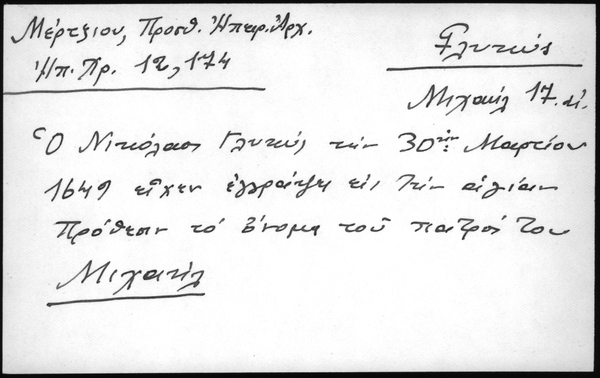 Μέρτζιου, Προσθ. Ἠπειρ. Ἀρχ.
Ἠπ. Χρ. 12, 174
Γλυκύς
Μιχαήλ 17. αἰ.
Ὁ Νικόλαος Γλυκύς τήν 30ὴν Μαρτίου
1649 εἶχεν ἐγγράψει εἰς τήν ἁγίαν
Πρόθεσιν τό ὄνομα τοῦ πατρός του
Μιχαήλ